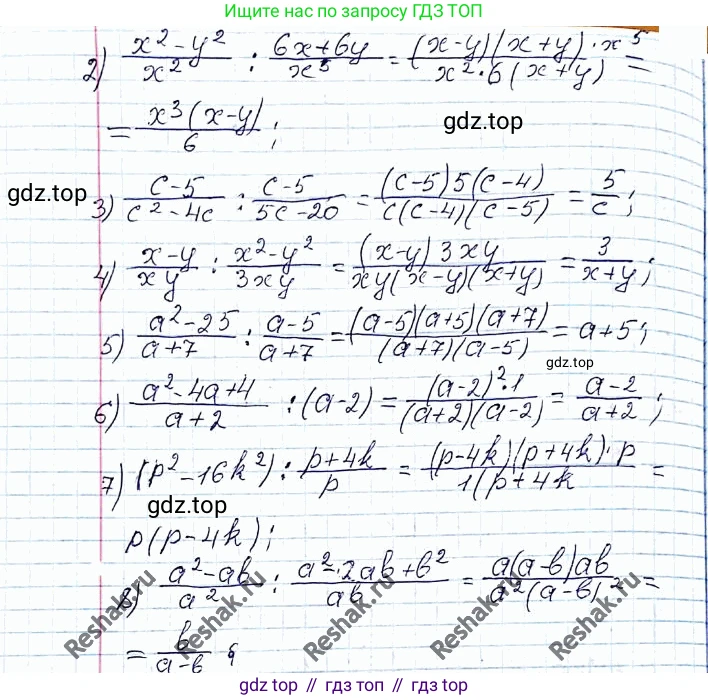 Ищите нас по запросу ГДЗ ТОП
2) \frac{x^2-y^2}{x^2} : \frac{6x+6y}{x^5} = \frac{(x-y)(x+y)·x^5}{x^2·6(x+y)} =
= \frac{x^3(x-y)}{6};
gdz.top
gdz.top
3) \frac{c-5}{c^2-4c} : \frac{c-5}{5c-20} = \frac{(c-5)5(c-4)}{c(c-4)(c-5)} = \frac{5}{c};
4) \frac{x-y}{xy} : \frac{x^2-y^2}{3xy} = \frac{(x-y)3xy}{xy(x-y)(x+y)} = \frac{3}{x+y};
5) \frac{a^2-25}{a+7} : \frac{a-5}{a+7} = \frac{(a-5)(a+5)(a+7)}{(a+7)(a-5)} = a+5;
gdz.top
6) \frac{a^2-4a+4}{a+2} : (a-2) = \frac{(a-2)^2·1}{(a+2)(a-2)} = \frac{a-2}{a+2};
7) (p^2-16k^2) : \frac{p+4k}{p} = \frac{(p-4k)(p+4k)·p}{1(p+4k} =
gdz.top
p(p-4k);
8) \frac{a^2-ab}{a^2} : \frac{a^2-2ab+b^2}{ab} = \frac{a(a-b)ab}{a^2(a-b)^2} =
= \frac{b}{a-b};
Reshak.ru
Reshak.ru
Reshak.ru
Reshak.ru
gdz.top // гдз.топ // gdz.top